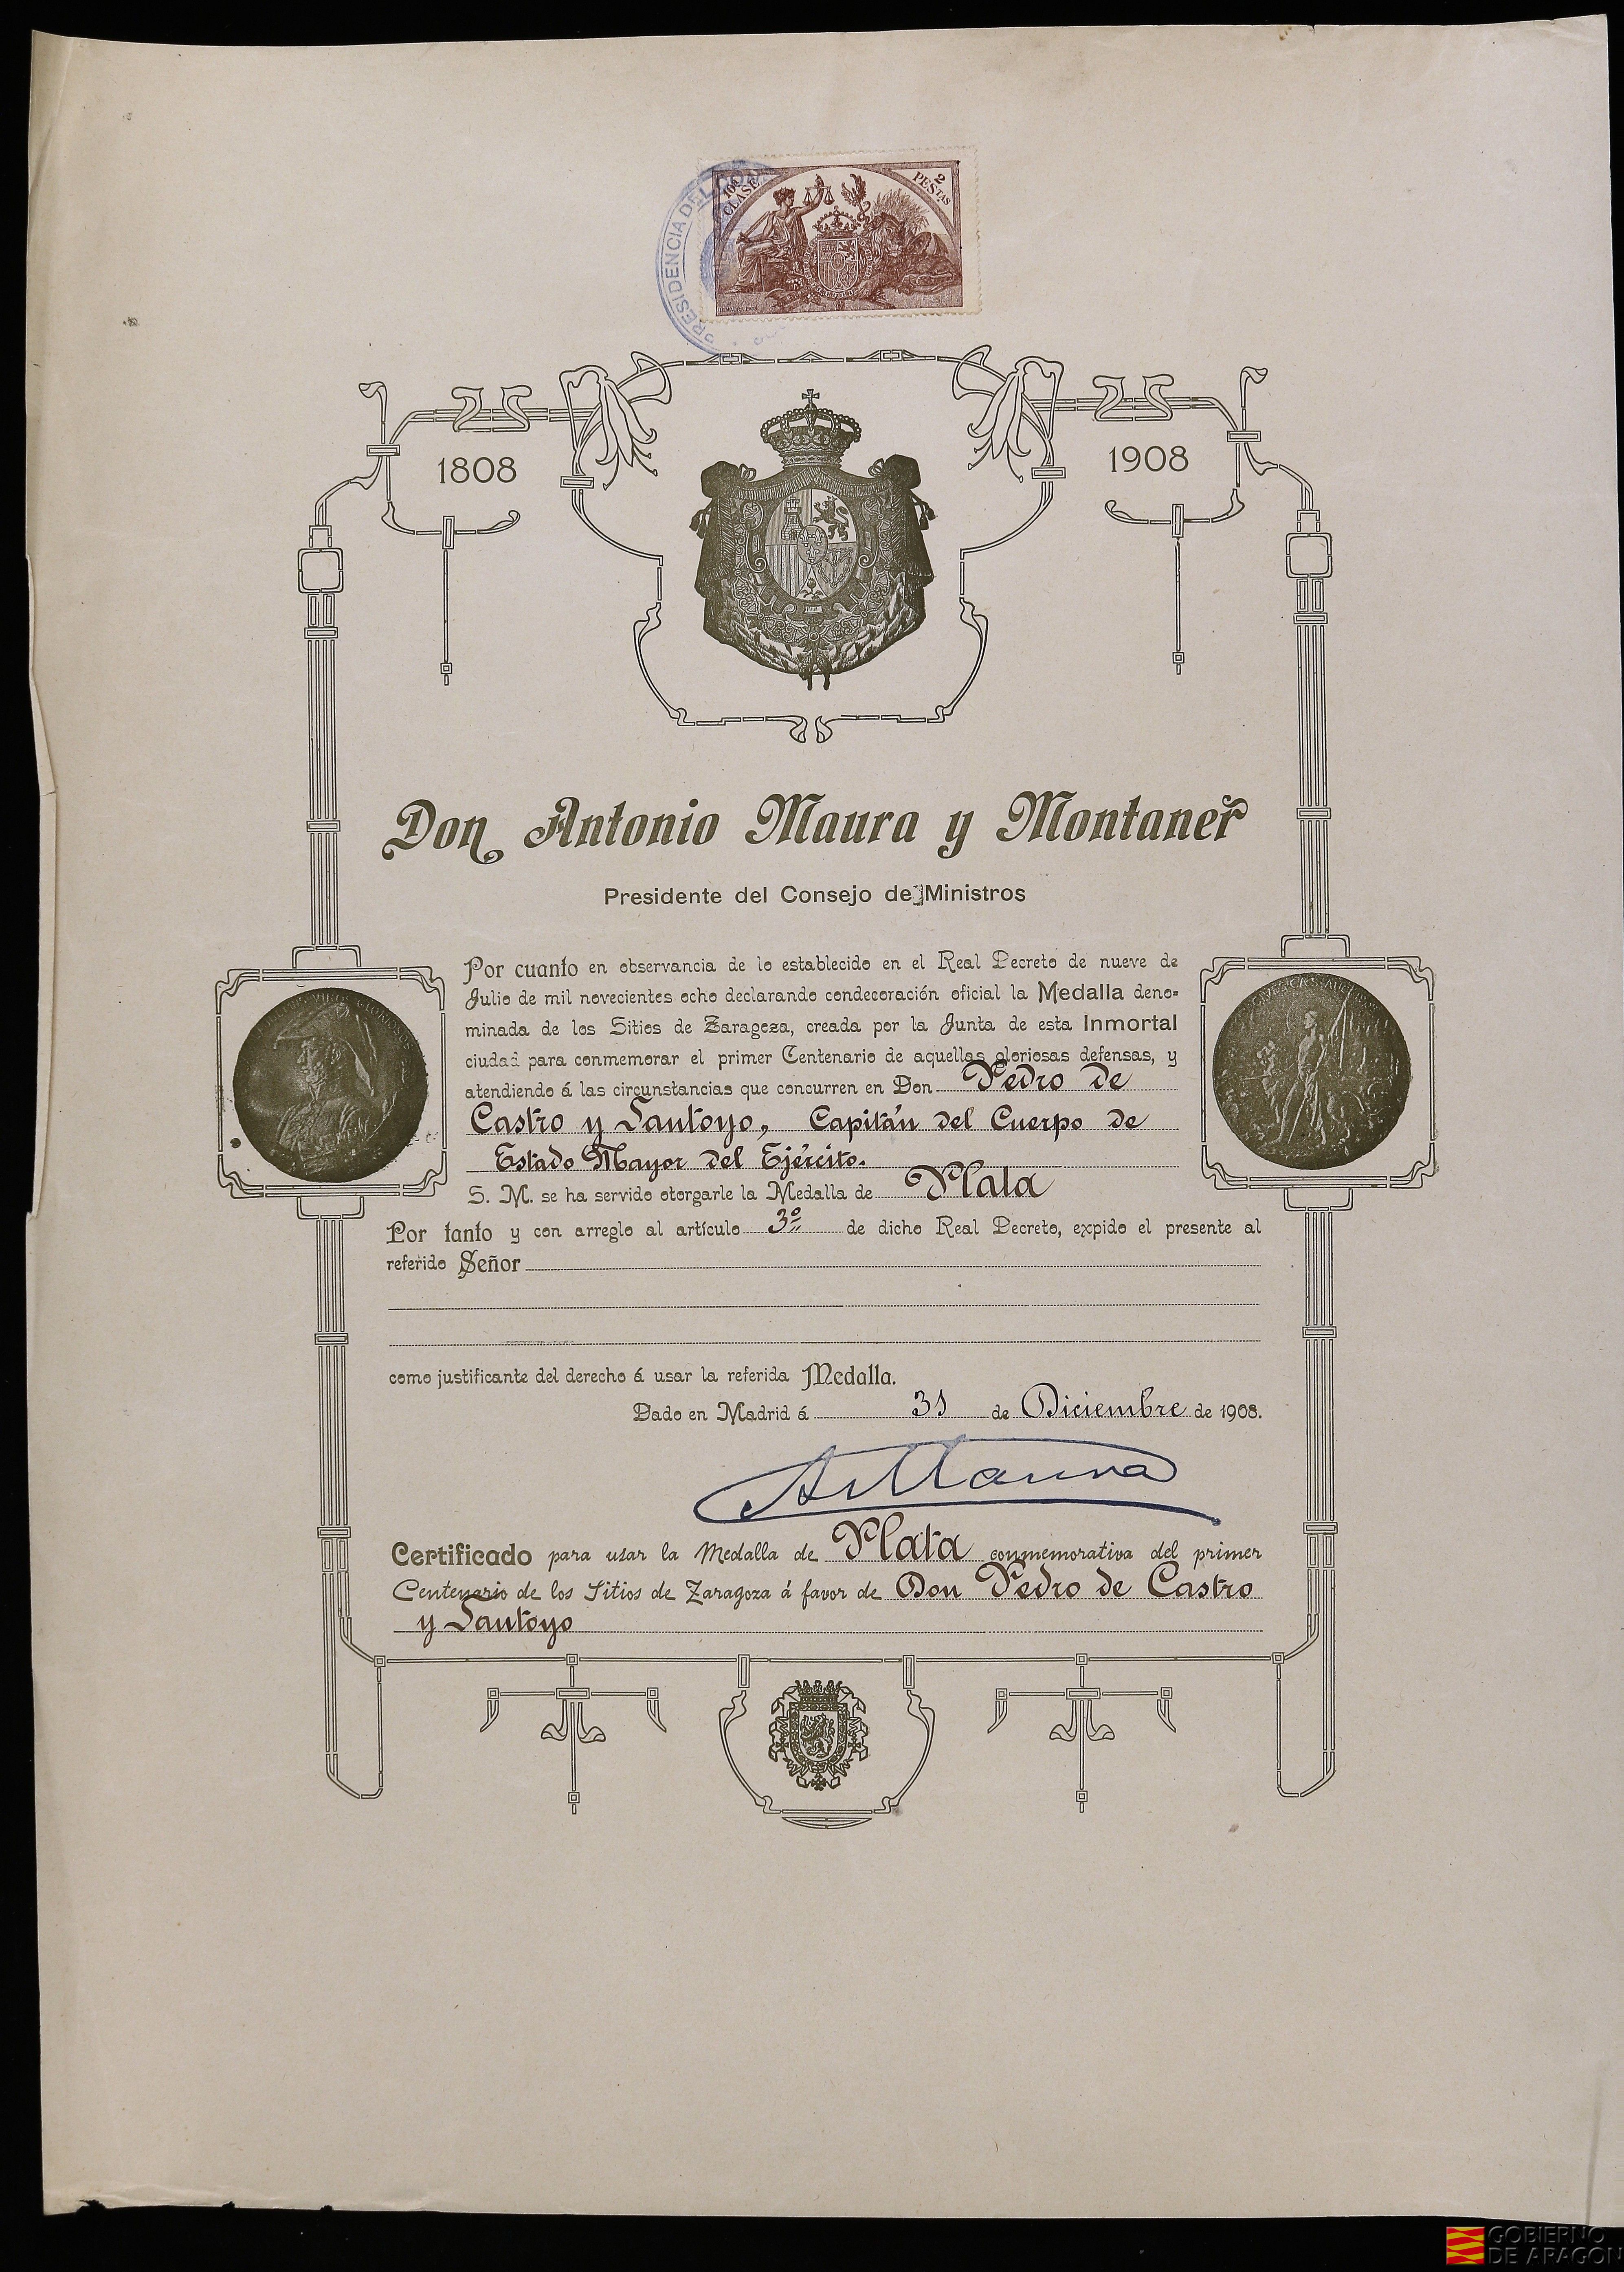 PRESIDENCIA DEL
10ª CLASE
2 PESTAS
1808
1908
Don Antonio Maura y Montaner
Presidente del Consejo de Ministros
Por cuanto en observancia de lo establecido en el Real Decreto de nueve de
Julio de mil novecientos ocho declarando condecoración oficial la Medalla deno-
minada de los Sitios de Zaragoza, creada por la Junta de esta Inmortal
ciudad para conmemorar el primer Centenario de aquellas gloriosas defensas, y
atendiendo á las circunstancias que concurren en Don Pedro de
Castro y Santoyo, Capitán del Cuerpo de
Estado Mayor del Ejército.
S. M. se ha servido otorgarle la Medalla de Plata
Por tanto y con arreglo al artículo 3º de dicho Real Decreto, expido el presente al
referido Señor
como justificante del derecho á usar la referida Medalla.
Dado en Madrid á 31 de Diciembre de 1908.
A Maura
Certificado para usar la Medalla de Plata conmemorativa del primer
Centenario de los Sitios de Zaragoza á favor de Don Pedro de Castro
y Santoyo
GOBIERNO
DE ARAGON